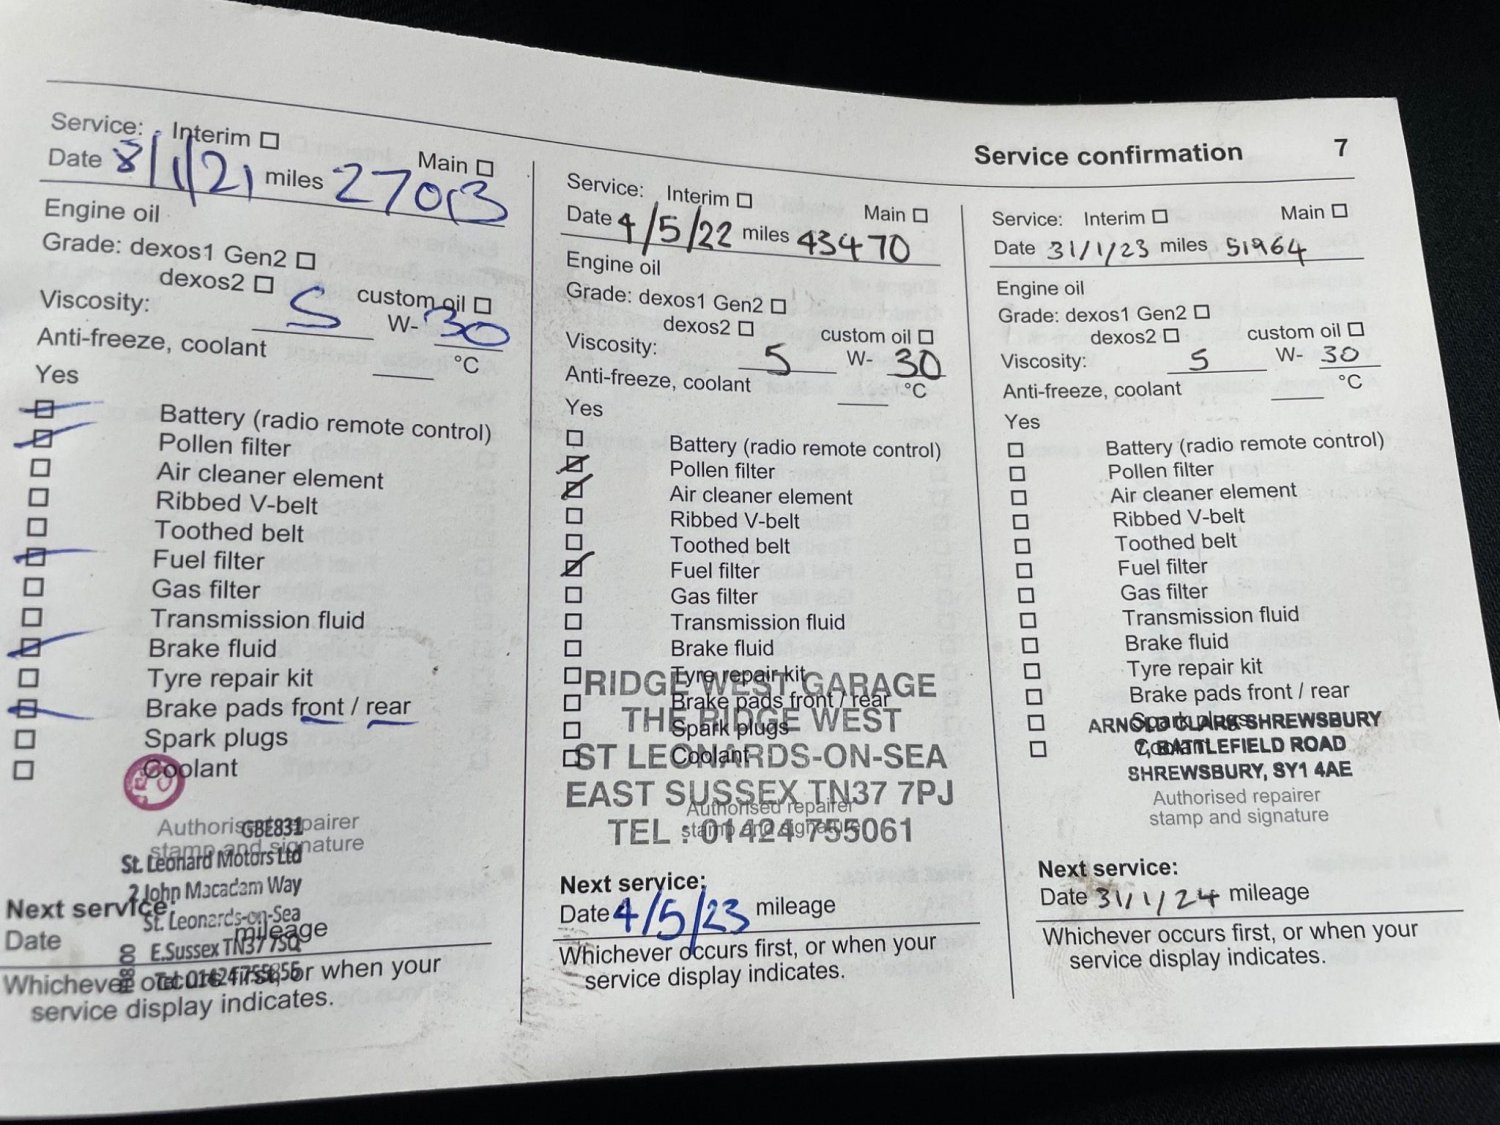 Service confirmation 7
Service: Interim Main
Date 8/1/21 miles 27013
Engine oil
Grade: dexos1 Gen2
dexos2 custom oil
Viscosity: 5 W- 30
Anti-freeze, coolant °C
Yes
Battery (radio remote control)
Pollen filter
Air cleaner element
Ribbed V-belt
Toothed belt
Fuel filter
Gas filter
Transmission fluid
Brake fluid
Tyre repair kit
Brake pads front / rear
Spark plugs
Coolant
Authorised repairer
stamp and signature
GBE831
St. Leonard Motors Ltd
2 John Macadam Way
St. Leonards-on-Sea
E.Sussex TN37 7SQ
Tel: 01424 755855
Next service:
Date mileage
Whichever occurs first, or when your
service display indicates.
Service: Interim Main
Date 4/5/22 miles 43470
Engine oil
Grade: dexos1 Gen2
dexos2 custom oil
Viscosity: 5 W- 30
Anti-freeze, coolant °C
Yes
Battery (radio remote control)
Pollen filter
Air cleaner element
Ribbed V-belt
Toothed belt
Fuel filter
Gas filter
Transmission fluid
Brake fluid
Tyre repair kit
Brake pads front / rear
Spark plugs
Coolant
RIDGE WEST GARAGE
THE RIDGE WEST
ST LEONARDS-ON-SEA
EAST SUSSEX TN37 7PJ
TEL : 01424 755061
Authorised repairer
stamp and signature
Next service:
Date 4/5/23 mileage
Whichever occurs first, or when your
service display indicates.
Service: Interim Main
Date 31/1/23 miles 51964
Engine oil
Grade: dexos1 Gen2
dexos2 custom oil
Viscosity: 5 W- 30
Anti-freeze, coolant °C
Yes
Battery (radio remote control)
Pollen filter
Air cleaner element
Ribbed V-belt
Toothed belt
Fuel filter
Gas filter
Transmission fluid
Brake fluid
Tyre repair kit
Brake pads front / rear
Spark plugs
Coolant
ARNOLD CLARK SHREWSBURY
7, BATTLEFIELD ROAD
SHREWSBURY, SY1 4AE
Authorised repairer
stamp and signature
Next service:
Date 31/1/24 mileage
Whichever occurs first, or when your
service display indicates.